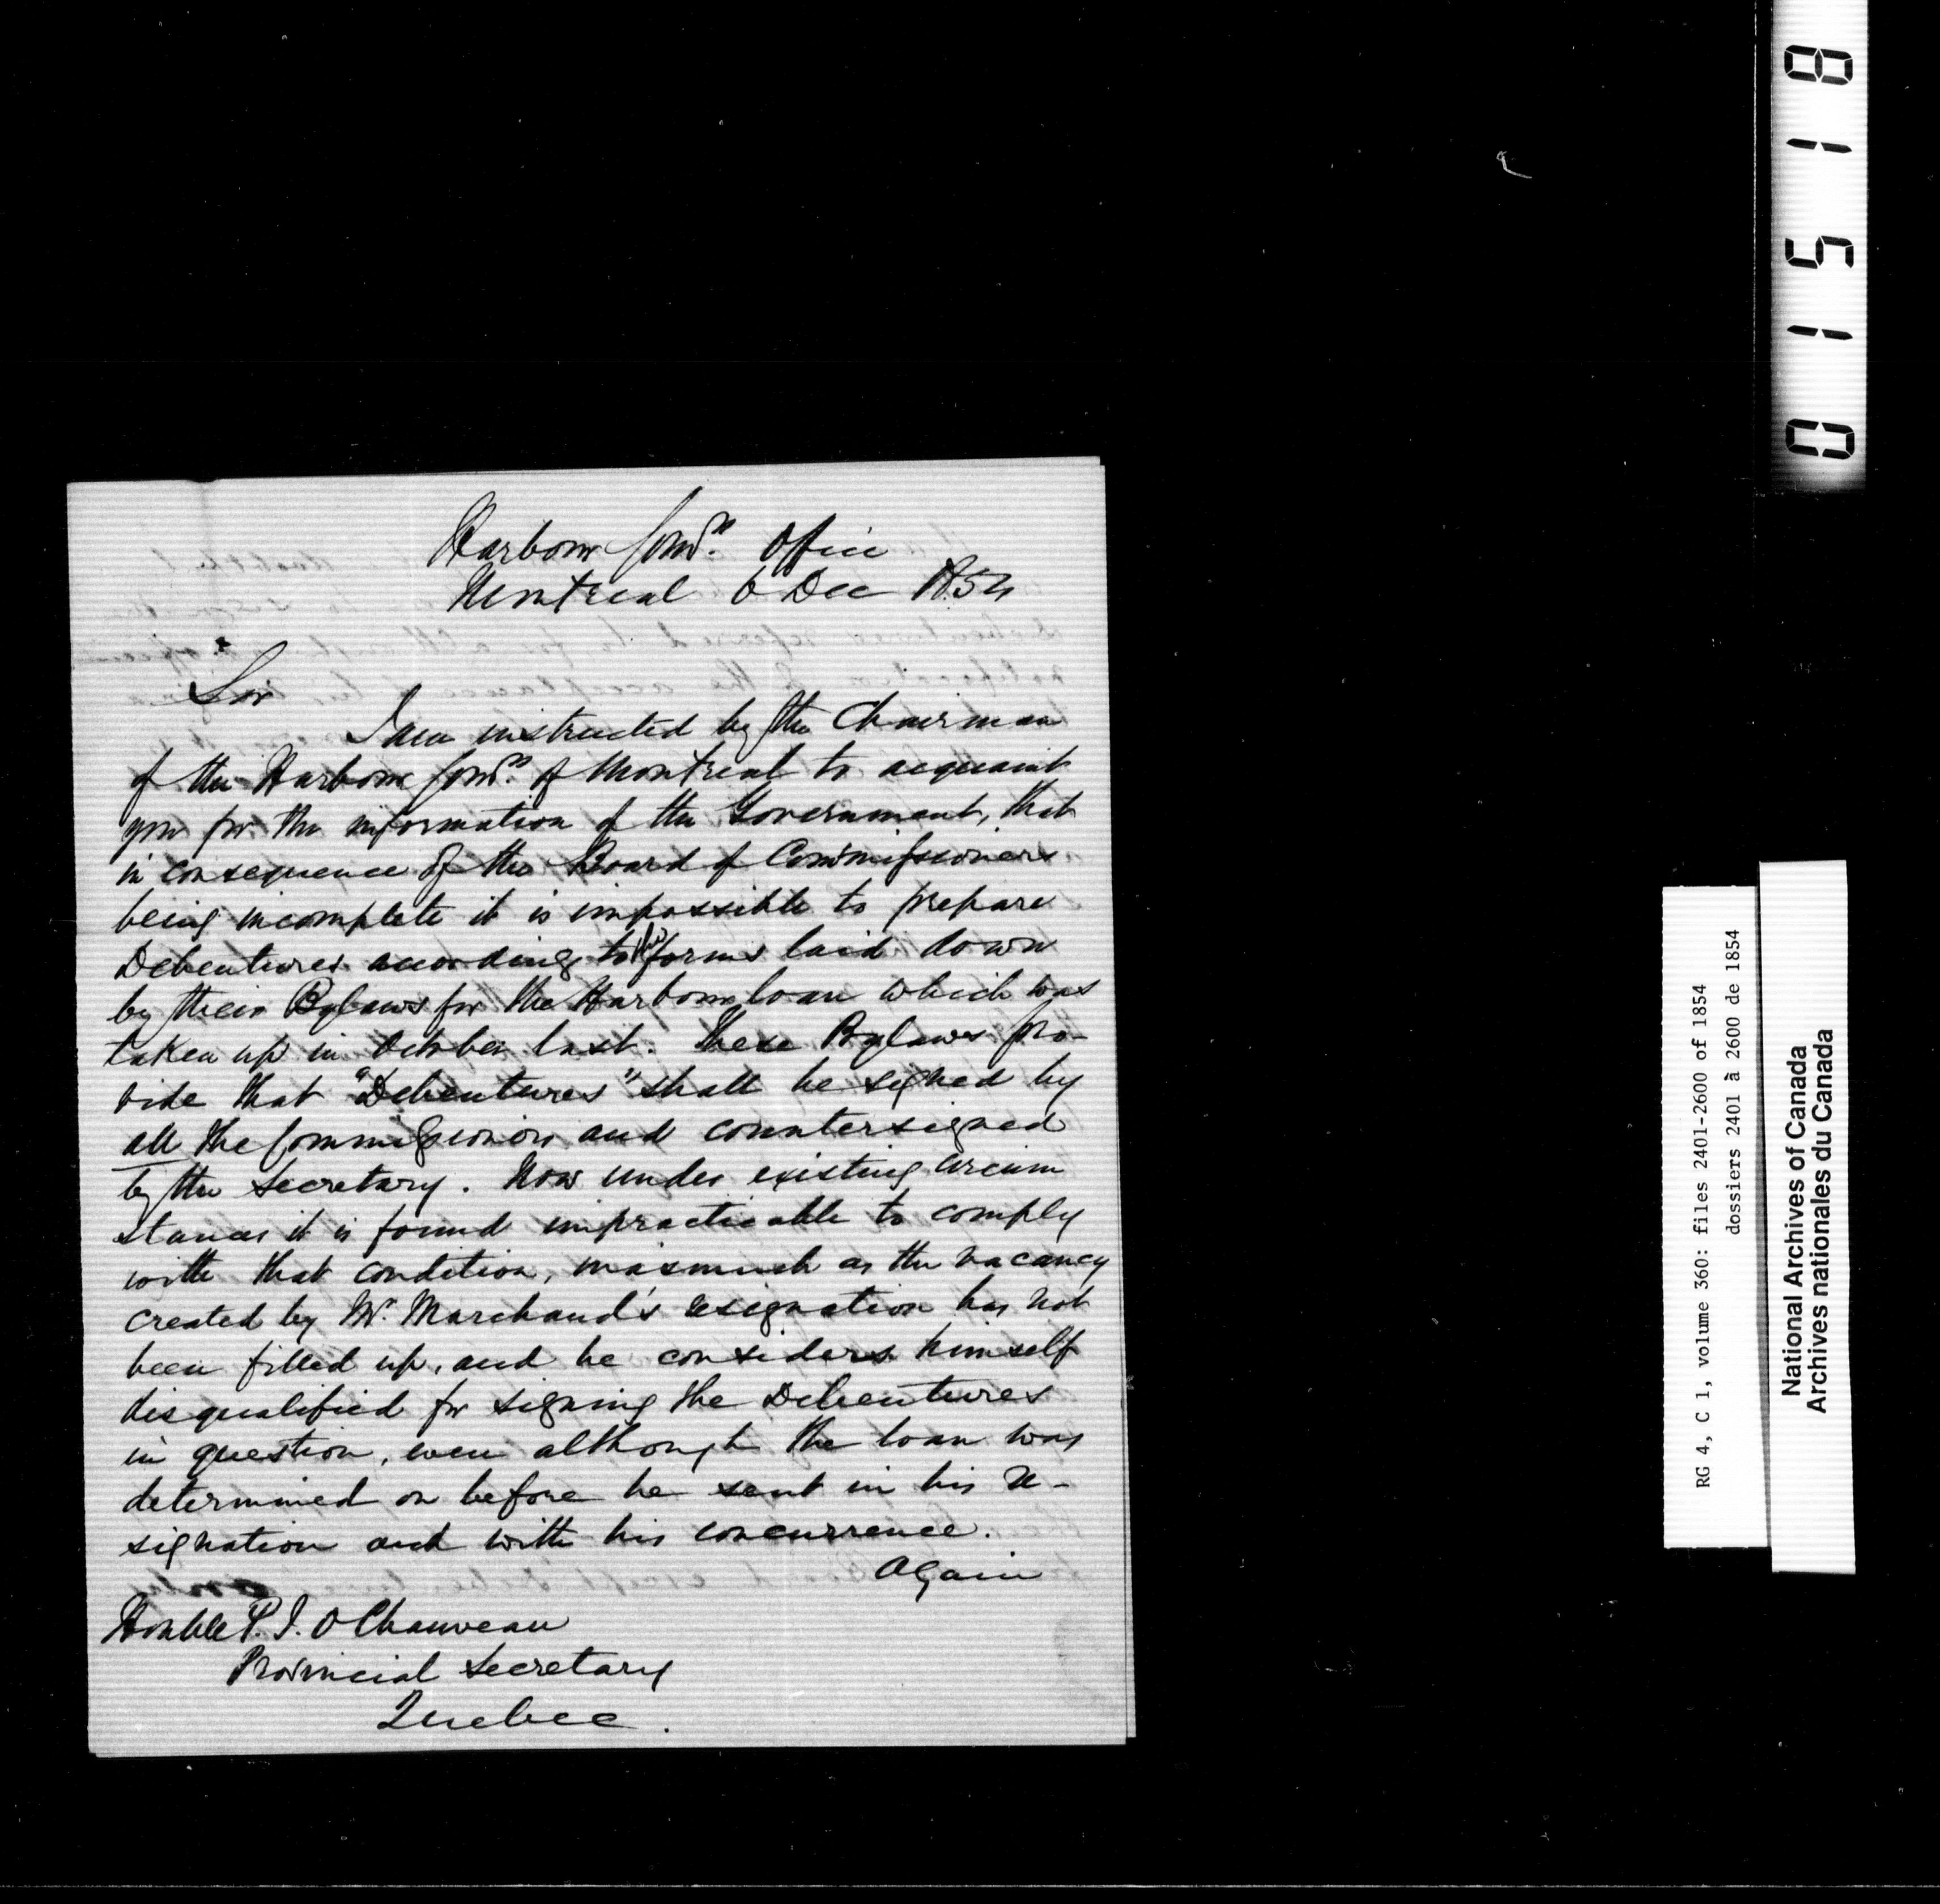 Harbour Comrs. Office
Montreal 6 Dec 1854
Sir
I am instructed by the Chairman
of the Harbour Comrs. of Montreal to acquaint
you for the information of the Government, that
in consequence of the Board of Commissioners
being incomplete it is impossible to prepare
Debentures according to the forms laid down
by their Bylaws for the Harbour loan which was
taken up in October last. These Bylaws pro-
vide that "Debentures" shall be signed by
all the Commissioners and countersigned
by the Secretary. Now under existing circum
stances it is found impracticable to comply
with that condition, inasmuch as the vacancy
created by Mr. Marchand's resignation has not
been filled up, and he considers himself
disqualified for signing the Debentures
in question, even although the loan was
determined on before he sent in his re-
signation and with his concurrence.
Again
Honble P. J. O Chauveau
Provincial Secretary
Quebec.
01518
RG 4, C 1, volume 360: files 2401-2600 of 1854
dossiers 2401 à 2600 de 1854
National Archives of Canada
Archives nationales du Canada